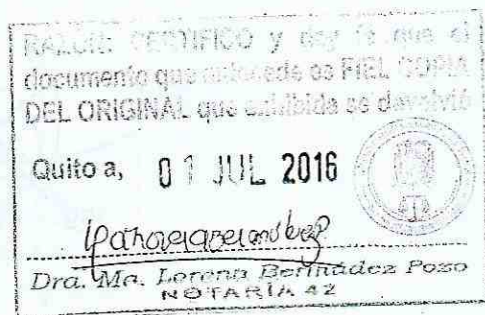 RAZON: CERTIFICO y doy fe que el
documento que antecede es FIEL COPIA
DEL ORIGINAL que exhibida se devolvió
Quito a, 01 JUL 2016
Dra. Ma. Lorena Bermúdez Pozo
NOTARÍA 42